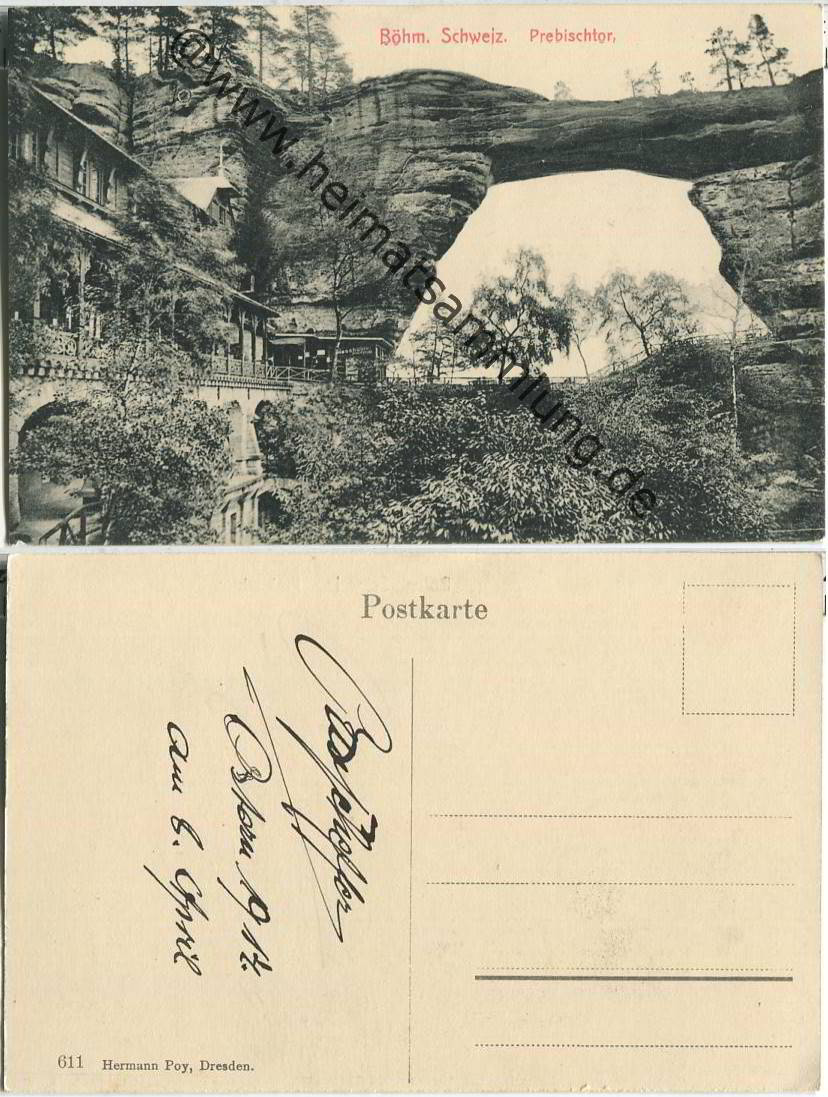 Böhm. Schweiz. Prebischtor.
@www.heimatsammlung.de
Postkarte
Ostern 1912.
am 6. April
611 Hermann Poy, Dresden.